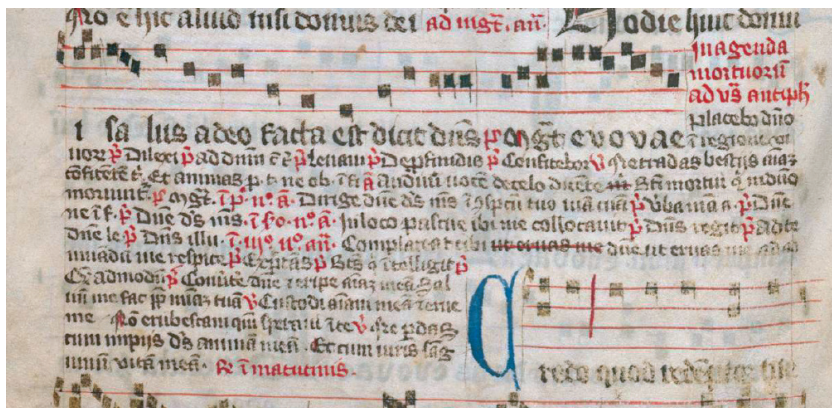 Nō ē hic aliud nisi domus dei ad mgt̄. an̄. Hodie huic domui
In agenda
mortuorū
ad vs̄ antiph̄
i sa lus a deo facta est dicit dn̄s p̄ mg̃t e v o v a e
placebo dn̄o
ī regione vi
uor p̄ Dilexi p̄ ad dn̄m c̄ t̄ p̄ leuaui p̄ De ꝓfundis p̄ Confitebor v̄ Ne tradas bestiis aīaz
ꝯfitent̄ t̄. Et animas p. t. ne ob. ī fi ā Audiui uocē de celo dicētē Bt̄i mortui q̄ in dn̄o
moriunt̄. p̄ mg̃t. ī p̄º. nº. ā. Dirige dn̄e ds̄ ms̄ ī ꝯspctū tuo uiā meā p̄ Vba mea ā. p̄ Dn̄e
ne ī f. p̄ Dn̄e ds̄ ms̄. ī fo. nº. ā. In loco pascue ibi me collocauit p̄ Dn̄s regit p̄ Ad te
dn̄e le p̄ Dn̄s illu. ī iiiº nº. an̄. Complaceat tibi ut eruas me dn̄e ut eruas me ad ad
iuuādū me respice p̄ Exp̄tās p̄ Bt̄s q̄ ītelligit p̄
Qē admodū p̄ Conūte dn̄e ⁊ eripe aīaz meā Sal
uū me fac ꝓp̄ miāz tuā v̄ Custodi aīam meā ⁊ erue
me Nō erubescam qm̄ speraui ī te v̄ Ne p̄das
cum impiis ds̄ animā meā. Et cum uiris sāg
uinū vitā meā. R̄ ī matutinis.
Credo quod redēptor